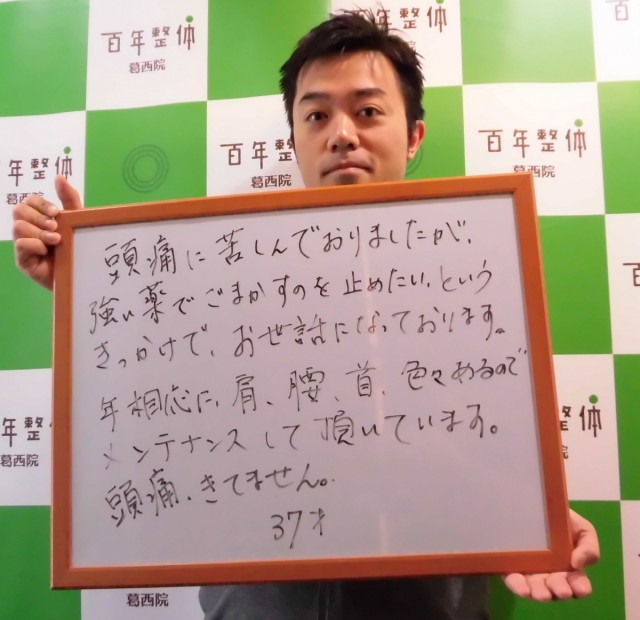 百年整体
葛西院
百年整体
葛西院
年整体
葛西院
百年整体
葛西院
百年整体
葛西院
頭痛に苦しんでおりましたが、
強い薬でごまかすのを止めたい、という
きっかけで、お世話になっております。
年相応に、肩、腰、首、色々あるので
メンテナンスして頂いています。
頭痛、きてません。
37才
年整
葛西院
百年整体
葛西院
葛西院
葛西院